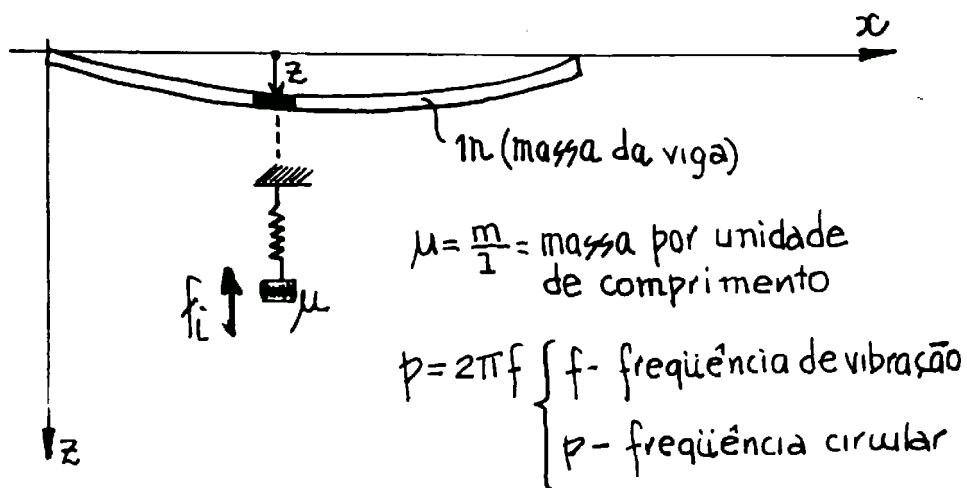 x
z
m (massa da viga)
μ = m/1 = massa por unidade
de comprimento
fi
μ
p = 2πf { f - freqüência de vibração
p - freqüência circular
z